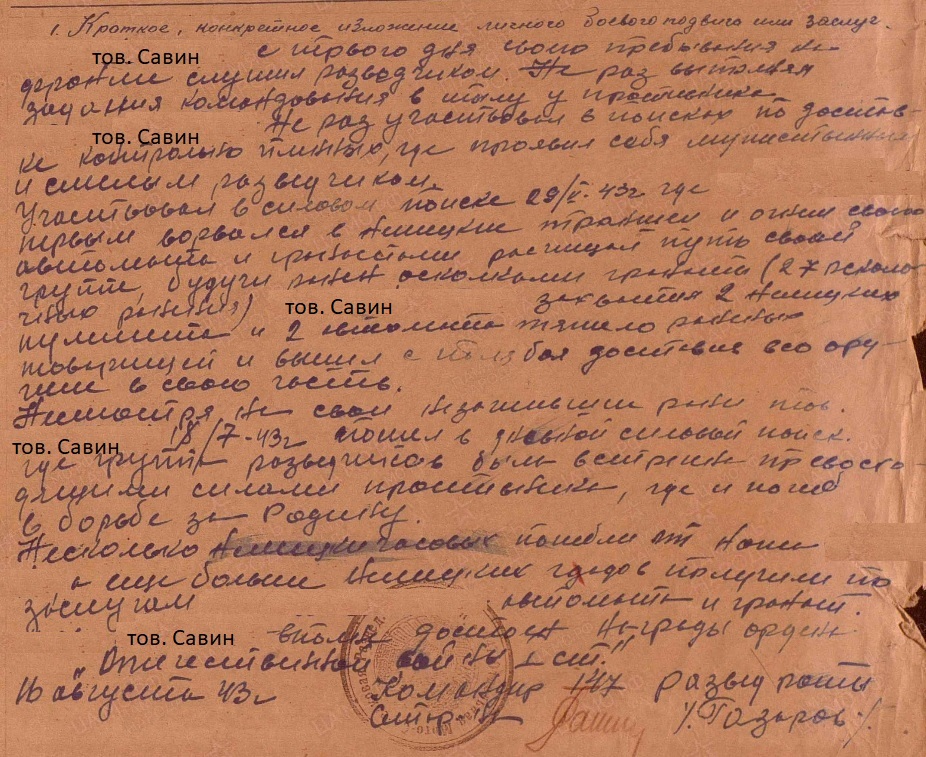 1. Краткое, конкретное изложение личного боевого подвига или заслуг.
тов. Савин с первого дня своего пребывания на
фронте служил разведчиком. Не раз выполнял
задания командования в тылу у противника
тов. Савин Не раз участвовал в поисках по достав-
ке контрольно пленных, где проявил себя мужественным
и смелым разведчиком.
Участвовал в силовом поиске 29/ 43г где
первым ворвался в немецкие траншеи и огнем своего
автомата и гранатами расчищал путь своей
группе, будучи ранен осколками гранаты (27 осколо-
чных ранений) тов. Савин захватил 2 немецких
пулемета и 2 автомата тяжело раненых
товарищей и вышел с поля боя доставив все ору-
жие в свою часть.
Несмотря на свои незажившие раны тов.
тов. Савин 18/7-43г пошел в силовый поиск.
где группа разведчиков была встречена превосхо-
дящими силами противника, где и погиб
в борьбе за Родину.
Несколько немецки часовых погибли от
а еще больше немецких гадов получили по
заслугам автомата и гранат.
тов. Савин вполне достоин награды ордена
„Отечественной войны 1 ст."
16 августа 43г Командир 147 развед роты
/Газаров/